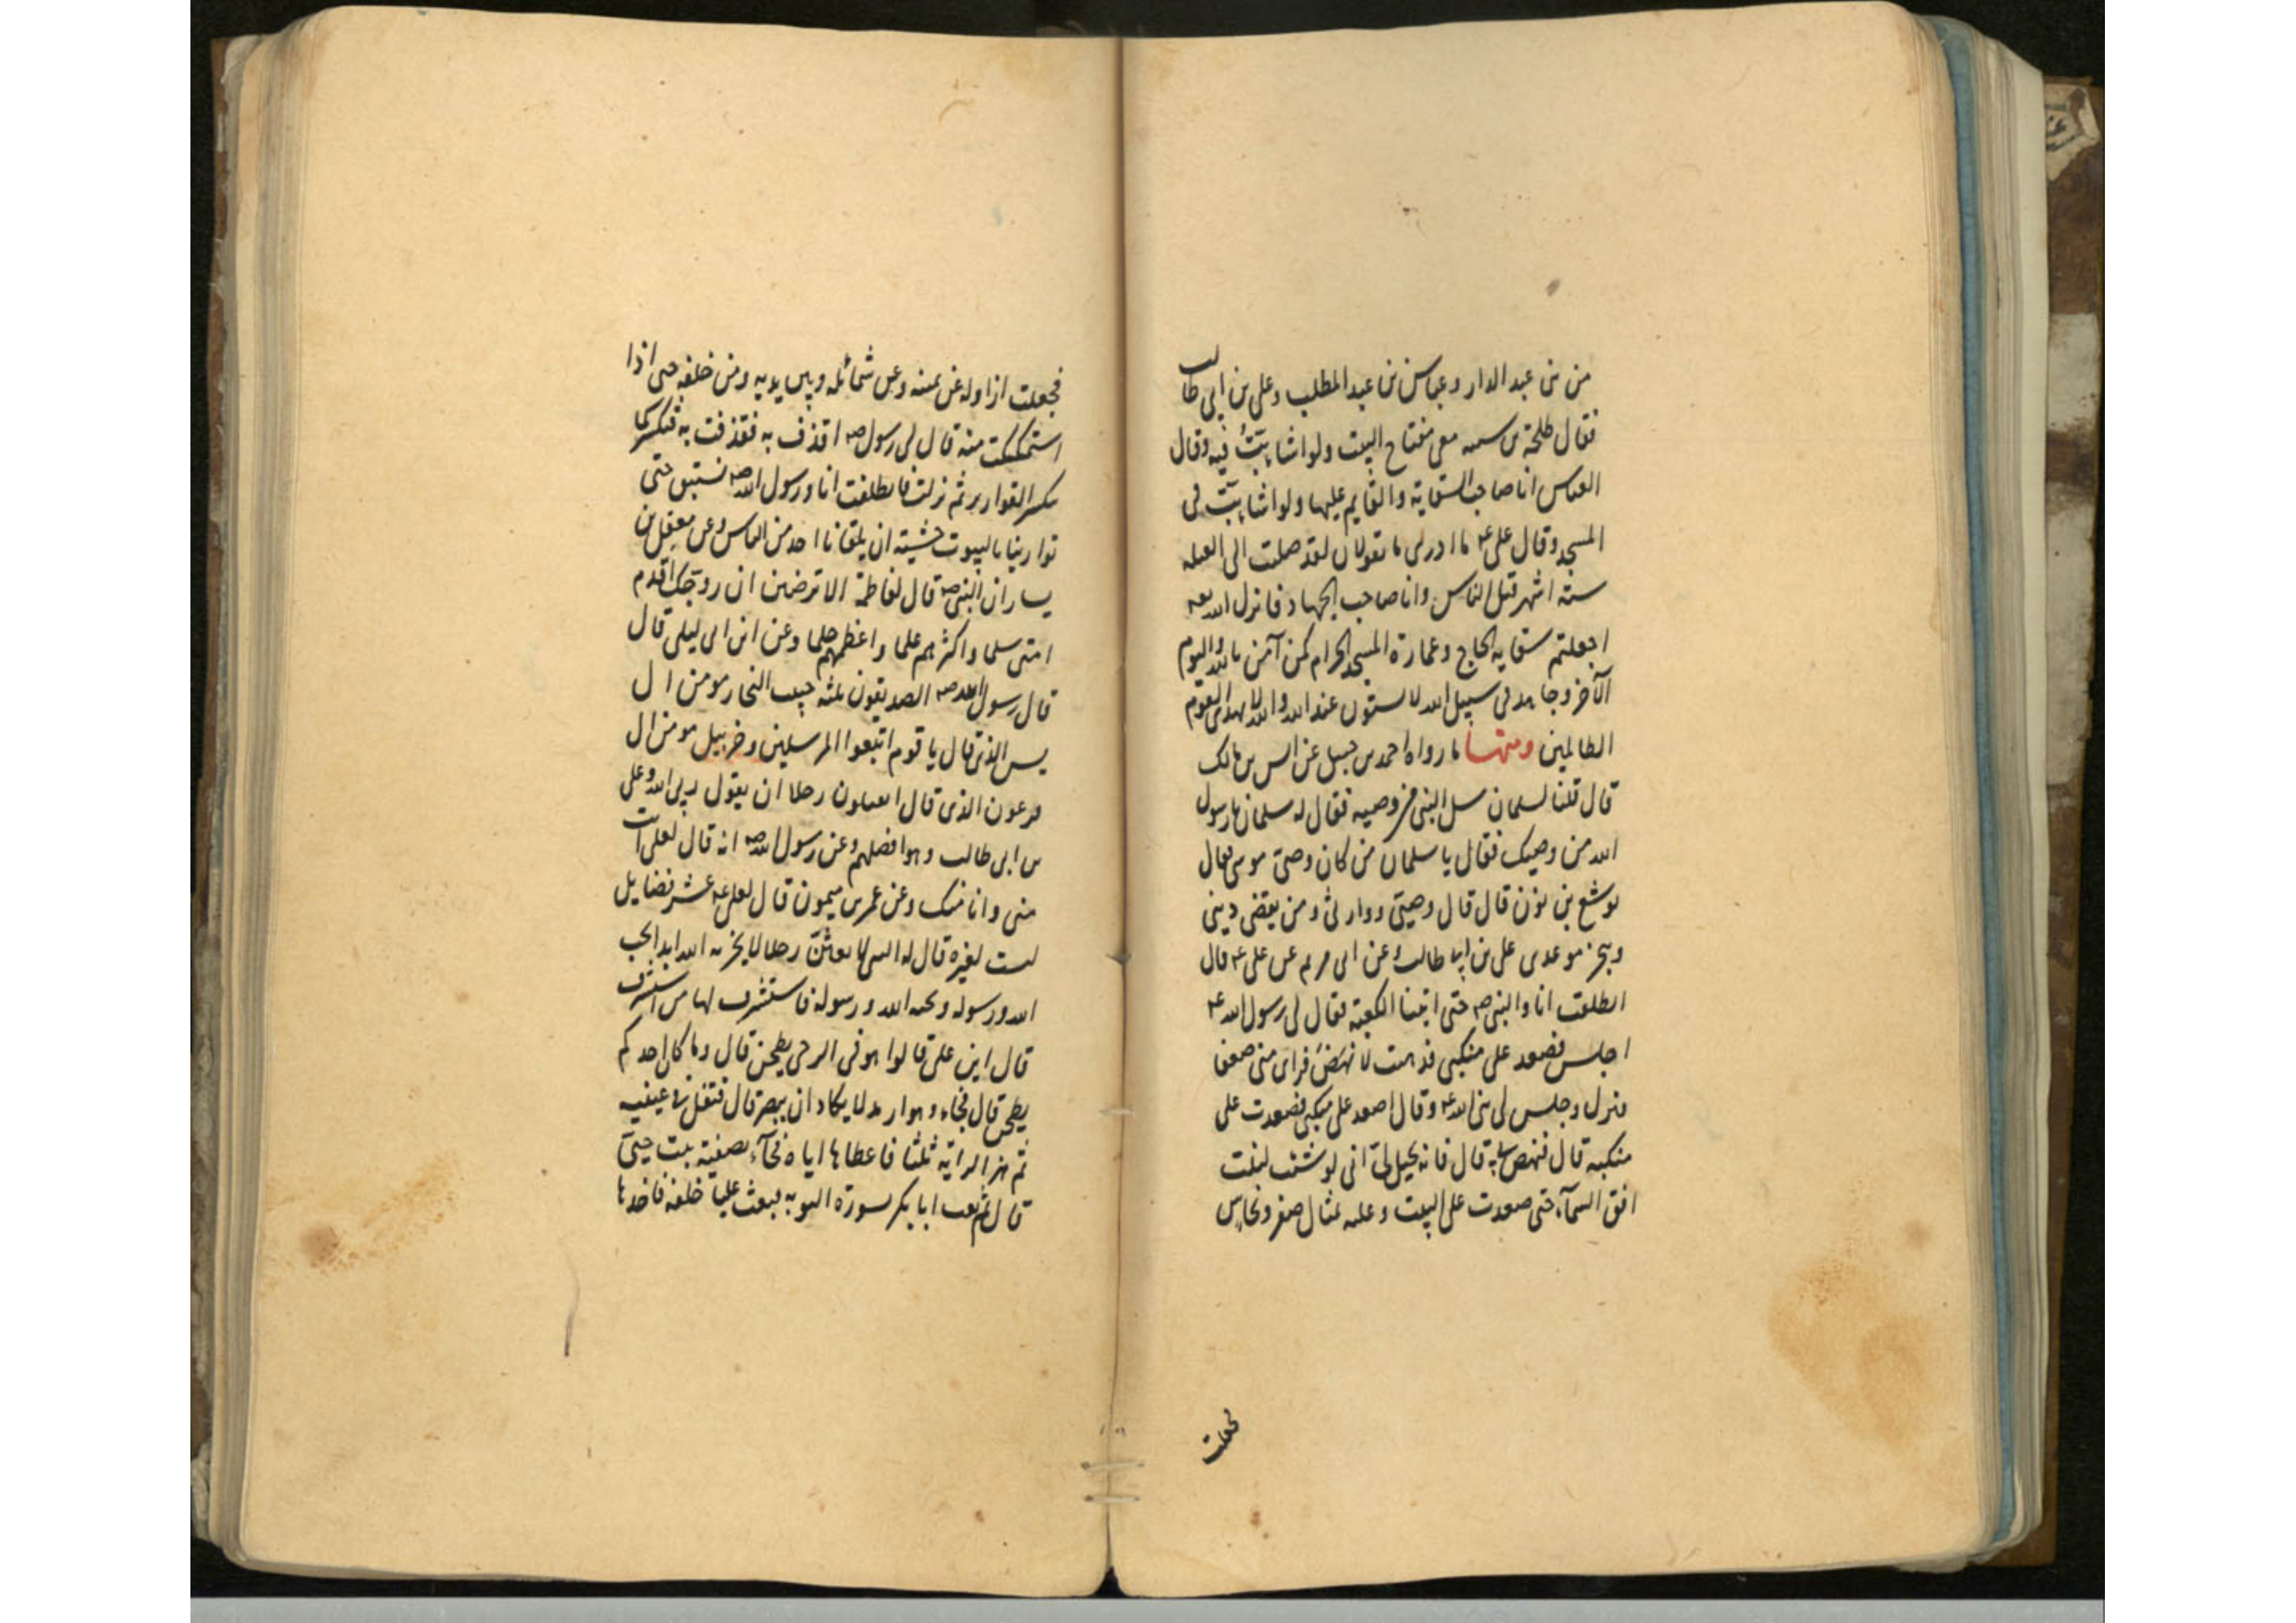 من بنى عبد الدار وعباس بن عبد المطلب وعلى بن ابى طالب
فقال طلحة بن شيبه معى مفتاح البيت ولو اشا بتُّ فيه وقال
العباس انا صاحب السقاية والقايم عليها ولو اشا بتّ فى
المسجد وقال على ع ما ادرى ما تقولان لقد صليت الى القبله
ستة اشهر قبل الناس وانا صاحب الجهاد فانزل الله تعه
اجعلتم سقايه الحاج وعمارة المسجد الحرام كمن آمن بالله واليوم
الآخر وجاهد فى سبيل الله لا يستون عند الله والله لا يهدى القوم
الظالمين ومنها ما رواه احمد بن حنبل عن انس بن مالك
قال قلنا لسلمان سل النبى من وصيه فقال له سلمان يا رسول
الله من وصيك فقال يا سلمان من كان وصى موسى فقال
يوشع بن نون قال قال وصيى ووارثى ومن يقضى دينى
وينجز موعدى على بن ابى طالب وعن ابى مريم عن على ع قال
انطلقت انا والنبى ص حتى اتينا الكعبة فقال لى رسول الله ع
اجلس فصعد على منكبى فذهبت لانهض فراى منى ضعفا
فنزل وجلس لى نبى الله ع وقال اصعد على منكبى فصعدت على
منكبيه قال فنهض بى قال فانه يخيل لى انى لو شئت لبلغت
افق السمآء حتى صعدت على البيت وعليه تمثال صفر ونحاس
فجعلت
فجعلت ازاوله عن يمينه وعن شمائله وبين يديه ومن خلفه حتى اذا
استمكنت منه قال لى رسول ص اقذف به فقذفت به فتكسر كما
يتكسر القوارير ثم نزلت فانطلقت انا ورسول الله ص نستبق حتى
توارينا بالبيوت خشيته ان يلقانا احد من الناس وعن معقل بن
يسار ان النبى ص قال لفاطمة الا ترضين ان زوجتك اقدم
امتى سلما واكثرهم علما واعظمهم حلما وعن ابن ابى ليلى قال
قال رسول الله ص الصديقون ثلثه حبيب النجار مومن ال
يس الذى قال يا قوم اتبعوا المرسلين وخربيل مومن ال
فرعون الذى قال اتقتلون رجلا ان يقول ربى الله وعلى
بن ابى طالب وهو افضلهم وعن رسول الله ص انه قال لعلى انت
منى وانا منك وعن عمر بن ميمون قال لعلى ع عشر فضايل
ليست لغيره قال له النبى لابعثن رجلا لا يخزيه الله ابدا يحب
الله ورسوله ويحبه الله ورسوله فاستشرف لها من استشرف
قال اين على قالوا هو فى الرحى يطحن قال وما كان احدكم
يطحن قال فجاء وهو ارمد لا يكاد ان يبصر قال فتفل فى عينيه
ثم هز الراية ثلثا فاعطاها اياه فجآء بصفية بنت حيى
قال ثم بعث ابا بكر بسورة التوبه فبعث عليا خلفه فاخذها